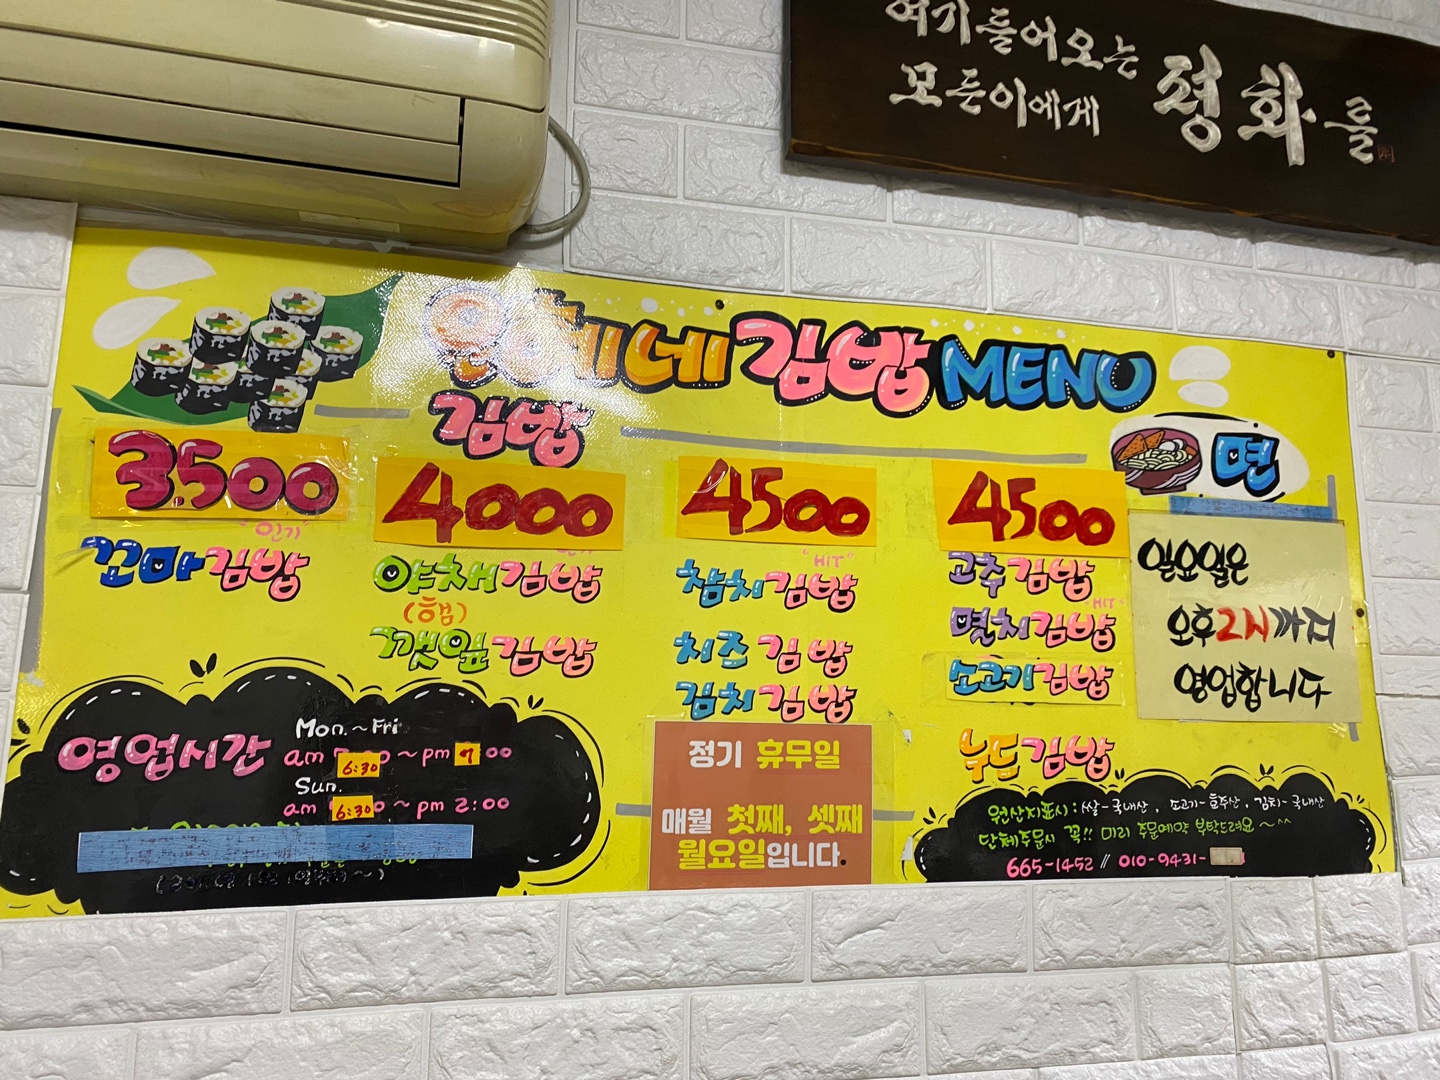 여기 들어오는
모든이에게 평화를
네김밥 MENU
김밥
3.500
"인기"
꼬마김밥
4000
야채김밥
(햄)
깻잎김밥
4500
"HIT"
참치김밥
치즈김밥
김치김밥
4500
고추김밥
"HIT"
멸치김밥
소고기김밥
누드김밥
면
일요일은
오후2시까지
영업합니다
영업시간
Mon.~Fri.
am 6:30 ~ pm 7:00
Sun.
am 6:30 ~ pm 2:00
정기 휴무일
매월 첫째, 셋째
월요일입니다.
원산지표시 : 쌀-국내산, 소고기-호주산, 김치-국내산
단체주문시 꼭!! 미리 주문예약 부탁드려요~^^
665-1452 // 010-9431-